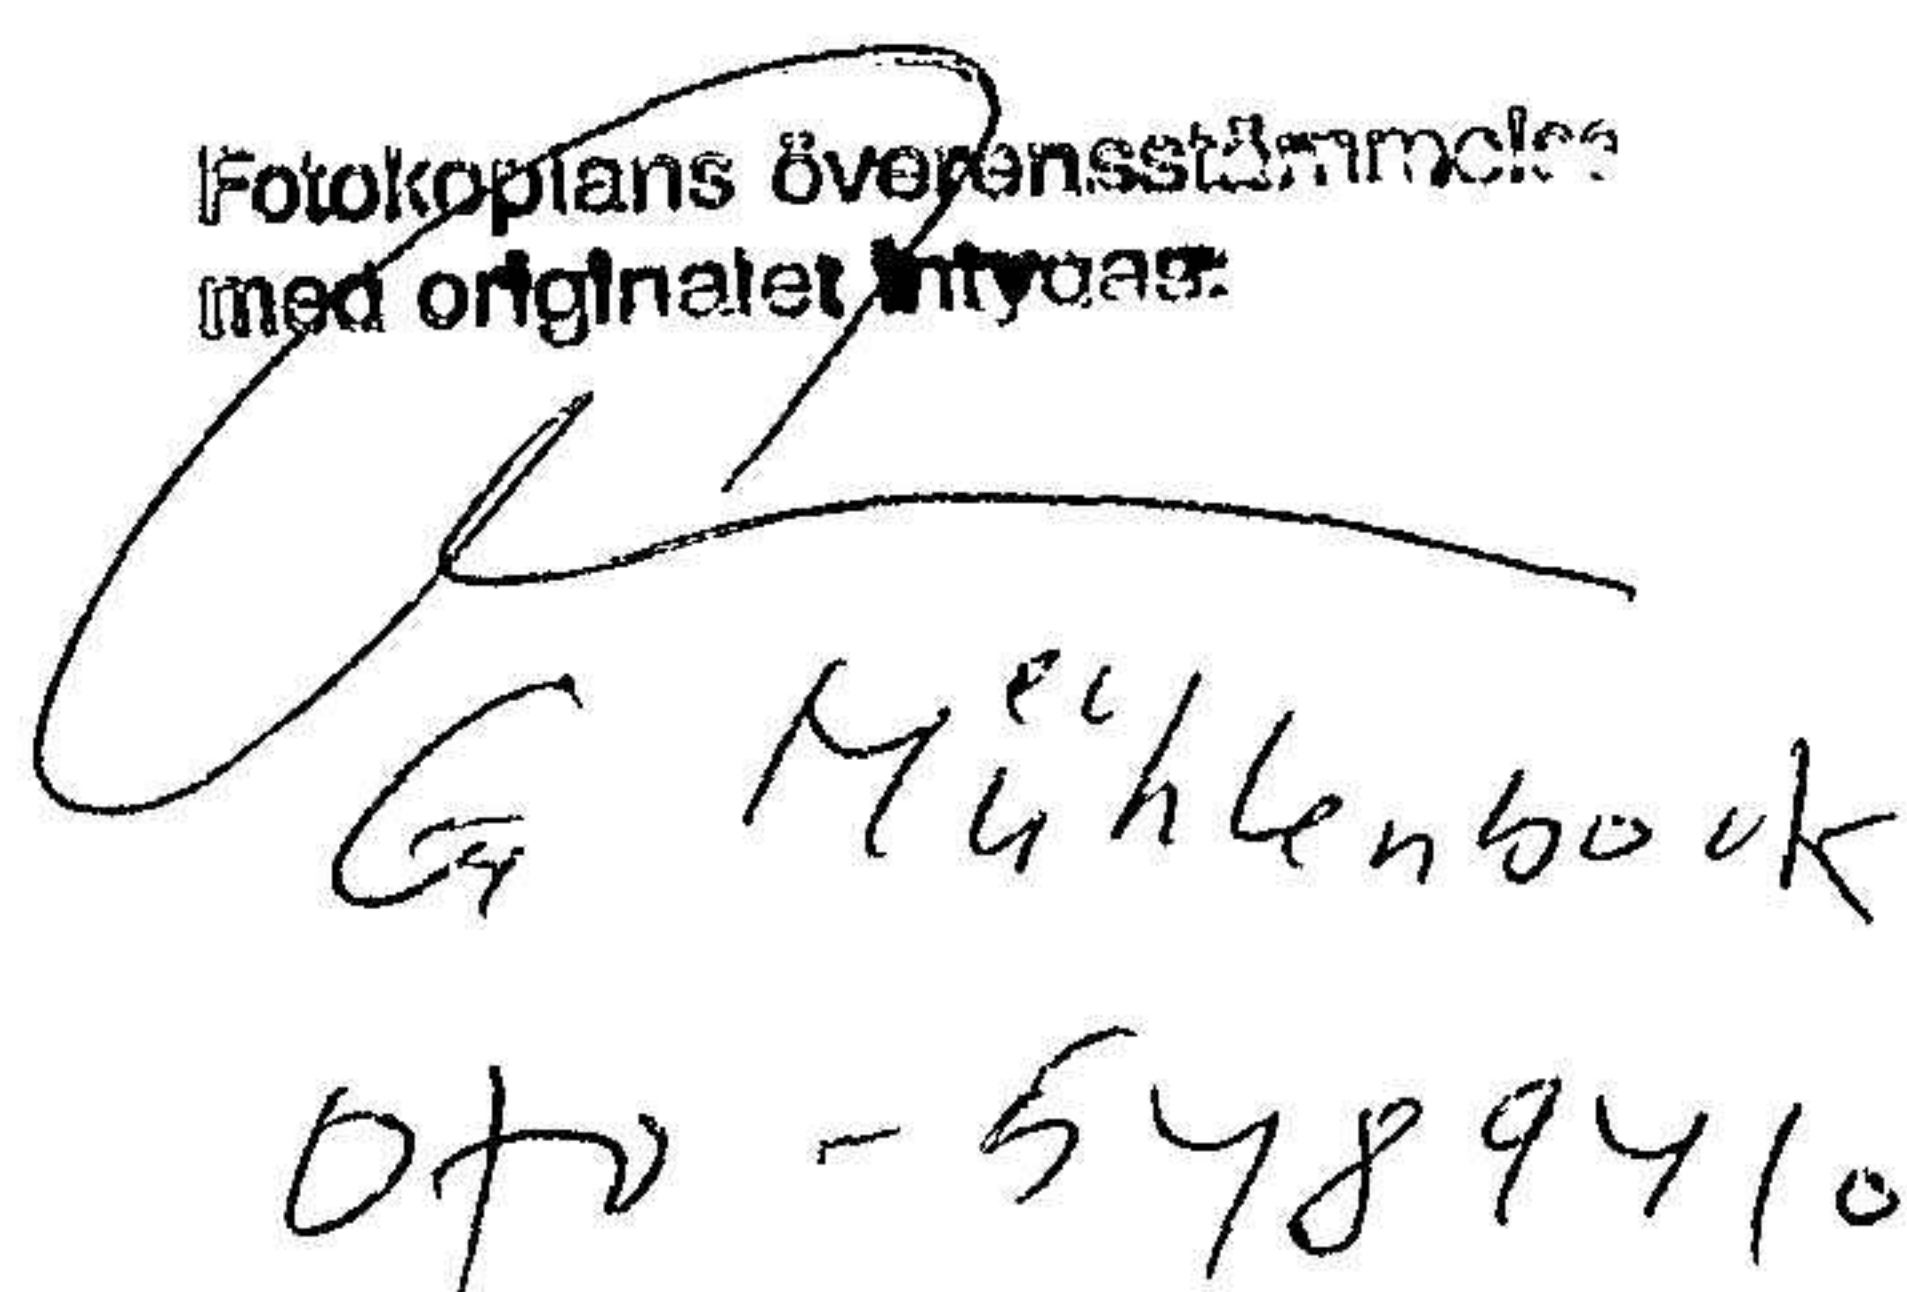 Fotokopians överensstämmelse
med originalet intygas:
G Mühlenbock
070-5489410